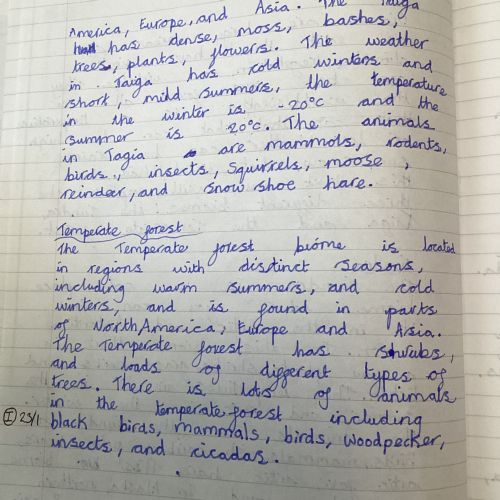 America, Europe, and Asia. The Taiga
has dense, moss, bashes,
trees, plants, flowers. The weather
in Taiga has cold winters and
short, mild summers, the temperature
in the winter is -20°C and the
summer is 20°C. The animals
in Tagia are mammols, rodents,
birds, insects, Squirrels, moose,
reindeer, and snow shoe hare.
Temperate forest
The Temperate forest biome is located
in regions with distinct seasons,
including warm summers, and cold
winters, and is found in parts
of North America, Europe and Asia.
The Temperate forest has shrubs,
and loads of different types of
trees. There is lots of animals
in the temperate forest including
I 25/1 black birds, mammals, birds, woodpecker,
insects, and cicadas.